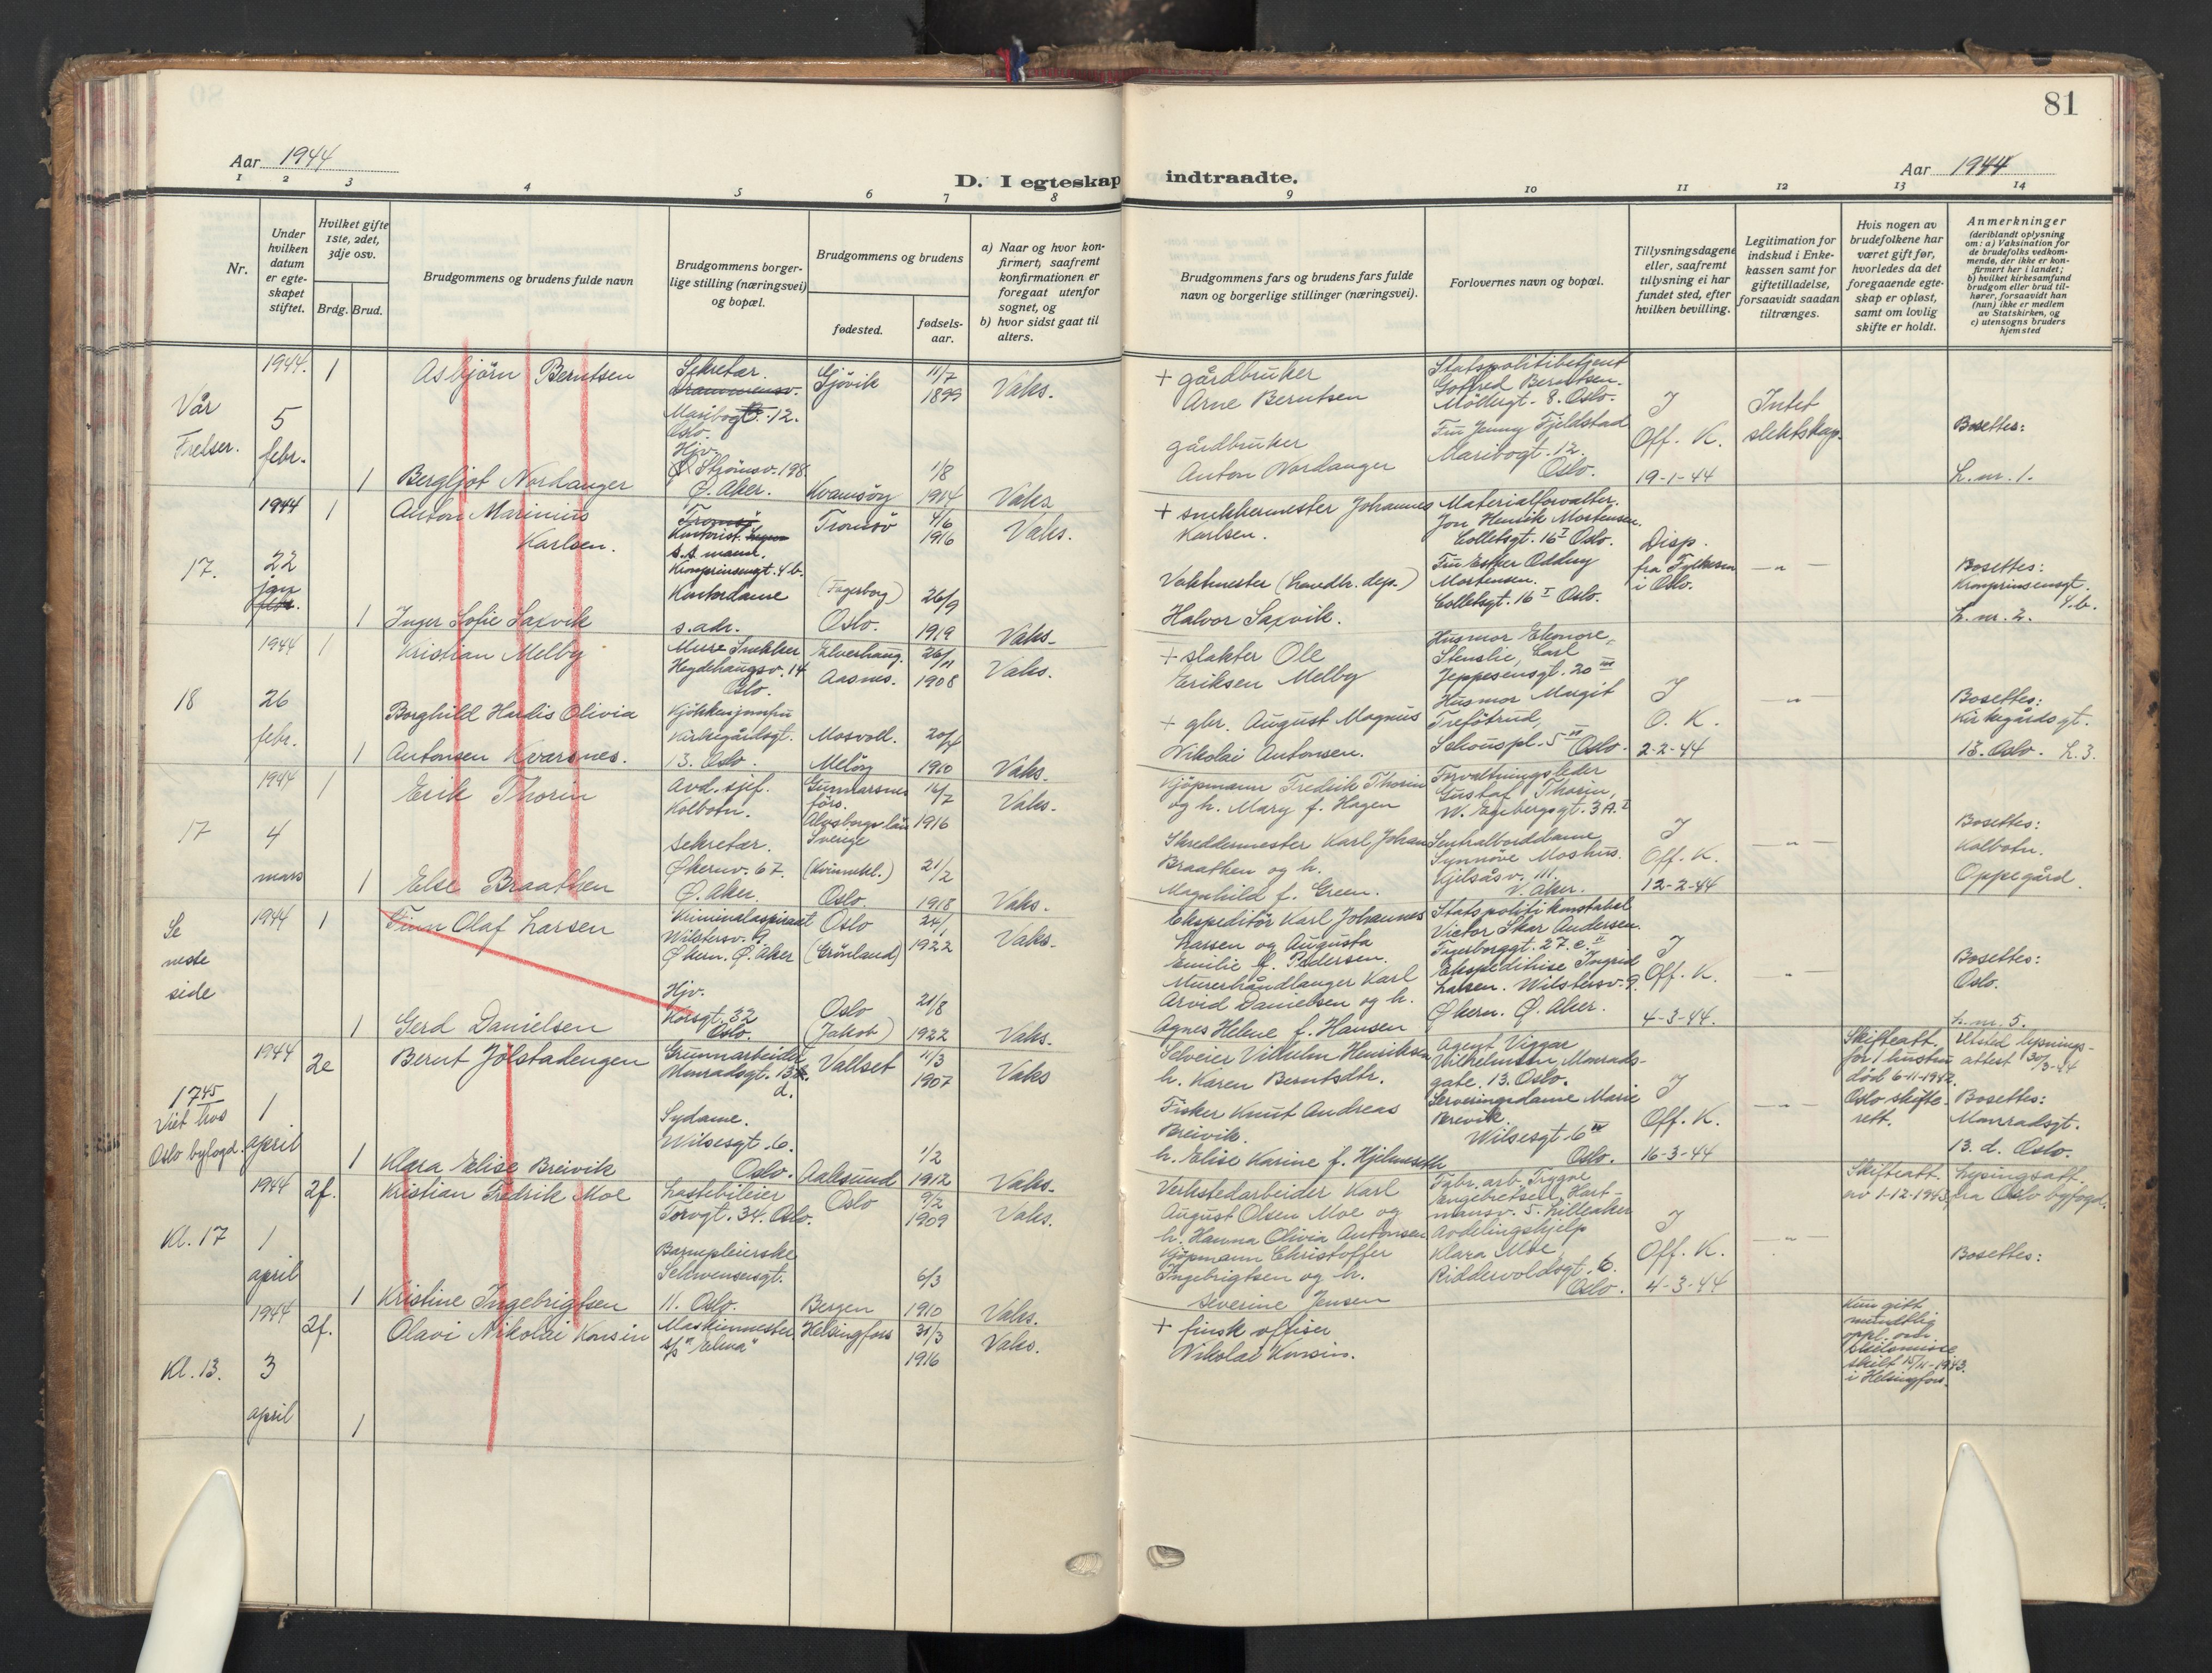 81
Aar 1944
D. I egteskap indtraadte.
Aar 1944
1 2 3 4 5 6 7 8 9 10 11 12 13 14
Nr.
Under hvilken datum er egteskapet stiftet.
Hvilket gifte 1ste, 2det, 3dje osv.
Brdg. Brud.
Brudgommens og brudens fulde navn
Brudgommens borgerlige stilling (næringsvei) og bopæl.
Brudgommens og brudens
fødested.
fødselsaar.
a) Naar og hvor konfirmert, saafremt konfirmationen er foregaat utenfor sognet, og
b) hvor sidst gaat til alters.
Brudgommens fars og brudens fars fulde navn og borgerlige stillinger (næringsvei).
Forlovernes navn og bopæl.
Tillysningsdagene eller, saafremt tillysning ei har fundet sted, efter hvilken bevilling.
Legitimation for indskud i Enkekassen samt for giftetilladelse, forsaavidt saadan tiltrænges.
Hvis nogen av brudefolkene har været gift før, hvorledes da det foregaaende egteskap er opløst, samt om lovlig skifte er holdt.
Anmerkninger (deriblandt oplysning om: a) Vaksination for de brudefolks vedkommende, der ikke er konfirmert her i landet; b) hvilket kirkesamfund brudgom eller brud tilhører, forsaavidt han (hun) ikke er medlem av Statskirken, og c) utensogns bruders hjemsted
Vår Frelser.
1944. 5 febr.
1
Asbjörn Berntsen
Sekretær.
Maribogt. 12.
Oslo.
Gjövik
11/7 1899
Vaks.
+ gårdbruker
Arne Berntsen
Statspolitibetjent
Gotfred Berntsen.
Möllergt. 8. Oslo.
J
Off. K.
19-1-44
Intet slektskap.
Bosettes:
L. nr. 1.
1
Bergljot Nordanger
Hjv.
Strömsv. 198.
Ø. Aker.
Kvamsöy
1/8 1914
Vaks
gårdbruker
Anton Nordanger
Fru Jenny Fjeldstad
Maribogt. 12.
Oslo.
17.
1944 22 jan
1
Anton Marinius
Karlsen.
Kontorist.
s.s. mand.
Kronprinsengt. 4 b.
Tromsö
4/6 1916
Vaks.
+ snekkermester Johannes
Karlsen.
Materialforvalter.
Jon Henrik Mortensen.
Colletsgt. 16 I Oslo.
Disp.
fra Fylkesm
i Oslo.
— „ —
Bosettes:
Kronprinsensgt.
4.b.
L. nr. 2.
1
Inger Sofie Saxvik
Kontordame
s. adr.
(Fagerborg)
Oslo.
26/9 1919
Vaks.
Vaktmester (Landbr. dep.)
Halvor Saxvik.
Fru Esther Oddny
Mortensen.
Colletsgt. 16 I Oslo.
18
1944 26 febr.
1
Kristian Melby
Heydehaugsv. 14
Oslo.
Elverhaug.
Aasnes.
26/11 1908
Vaks.
+ slakter Ole
Eriksen Melby
Husmor Elenore
Stenslie, Carl
Jeppesensgt. 20 III
J
O. K.
2-2-44
— „ —
Bosettes:
Kirkegårdsgt.
13. Oslo. L. 3.
1
Borghild Hardis Olivia
Antonsen Kvarsnes.
Kjökkenjomfru
Kirkegårdsgt.
13. Oslo.
Mosvoll.
Melöy
20/4 1910
Vaks.
+ gbr. August Magnus
Nikolai Antonsen.
Husmor Margit
Treförud,
Schouspl. 5 II Oslo.
17
1944 4 mars
1
Erik Thorin
Avd. sjef.
Kolbotn.
Gunnarsnes
förs.
Älvsborgs län
Sverige
16/7 1916
Vaks.
Kjöpmann Fredrik Thorin
og h. Mary f. Hagen
Forvaltningsleder
Gustaf Thorin,
W. Egebergsgt. 3 A. I
J
Off. K.
12-2-44
— „ —
Bosettes:
Kolbotn.
Oppegård.
1
Else Braathen
Sekretær.
Økernv. 67.
Ø. Aker.
(Kvinnekl.)
Oslo.
21/2 1918
Vaks.
Skreddermester Karl Johan
Braathen og h.
Magnhild f. Green.
Sentralborddame
Synnöve Moshus.
Kjelsåsv. 111.
V. Aker.
Se neste side
1944
1
Finn Olaf Larsen
Kriminalaspirant
Wilstersv. 9
Økern. Ø. Aker
Oslo
(Grönland)
24/1 1922
Vaks.
Ekspeditör Karl Johannes
Larsen og Augusta
Emilie f. Pedersen.
Statspolitikonstabel
Victor Skar Andersen.
Fagerborggt. 27. c. II
J
Off. K.
4-3-44.
— „ —
Bosettes:
Oslo.
L. nr. 5.
1
Gerd Danielsen
Hjv.
Korsgt. 32
Oslo.
Oslo
(Jakob)
21/8 1922
Vaks.
Murerhåndlanger Karl
Arvid Danielsen og h.
Agnes Helene f. Hansen
Ekspeditrise Ingrid
Larsen. Wilstersv. 9.
Økern. Ø. Aker.
17 45
Viet hos
Oslo byfogd.
1944 1 april
2e
Bernt Jölstadengen
Grunnarbeider
Monradsgt. 13
d.
Vallset
11/3 1907
Vaks
Selveier Vilhelm Henriksen
h. Karen Berntsdtr.
Agent Viggar
Wilhelmsen, Monradsgate. 13. Oslo.
J
Off. K.
16-3-44
— „ —
Skifteatt.
for 1 hustru
död 6-11-1942.
Oslo skifterett.
Utsted lysningsattest 30/3-44
Bosettes:
Monradsgt.
13. d. Oslo.
1
Klara Elise Breivik
Sydame.
Wilsesgt. 6.
Oslo.
Aalesund
1/2 1912
Vaks.
Fisker Knut Andreas
Breivik.
h. Elise Karine f. Hjelmeseth
Serveringsdame Marie
Breivik
Wilsesgt 6 III
Oslo.
Kl. 17
1944 1 april
2f.
Kristian Fredrik Moe
Lastebileier
Torvgt. 34. Oslo.
Oslo
9/2 1909
Vaks.
Verkstedarbeider Karl
August Olsen Moe og
h. Hanna Olivia Antonsen
Fabr. arb. Tryggve
Engebretsen, Hartmansv. 5. Lilleaker
J
Off. K.
4-3-44
— „ —
Skifteatt.
av 1-12-1943,
Lysingsatt.
fra Oslo byfogd.
Bosettes:
1
Kristine Ingebrigtsen
Barnepleierske
Schwensensgt.
11. Oslo.
Bergen
6/3 1910
Vaks.
Kjöpmann Christoffer
Ingebrigtsen og h.
Severine Jensen
Avdelingshjelp
Klara Moe
Riddervoldsgt. 6.
Oslo.
Kl. 13.
1944 3 april
2f.
Olavi Nikolai Konsin
Maskinmester
s/s "Elina"
Helsingfors
31/3 1916
Vaks.
+ finsk offiser
Nikolai Konsin.
Kun gitt
muntlig
oppl. om
skilsmisse
skilt 15/11-1943.
i Helsingfors.
1